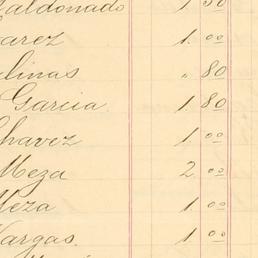 Maldonado 1 50
varez 1. 00
linas " 80
Garcia. 1 80
Chavez 1. 00
Meza 2. 00
Meza 1. 00
Vargas. 1. 00